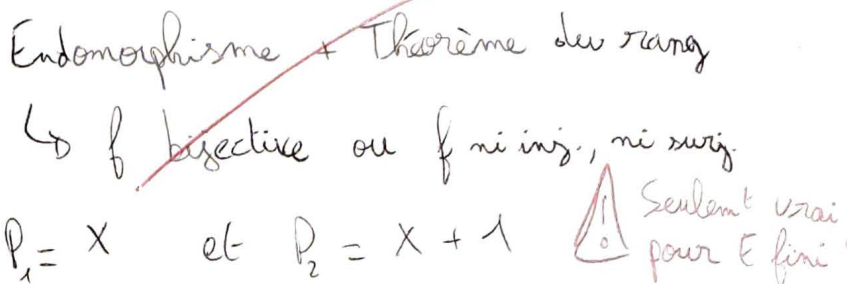 Endomorphisme + Théorème du rang
↳ f bijective ou f ni inj., ni surj.
P₁ = X et P₂ = X + 1
Seulemt vrai
pour E fini